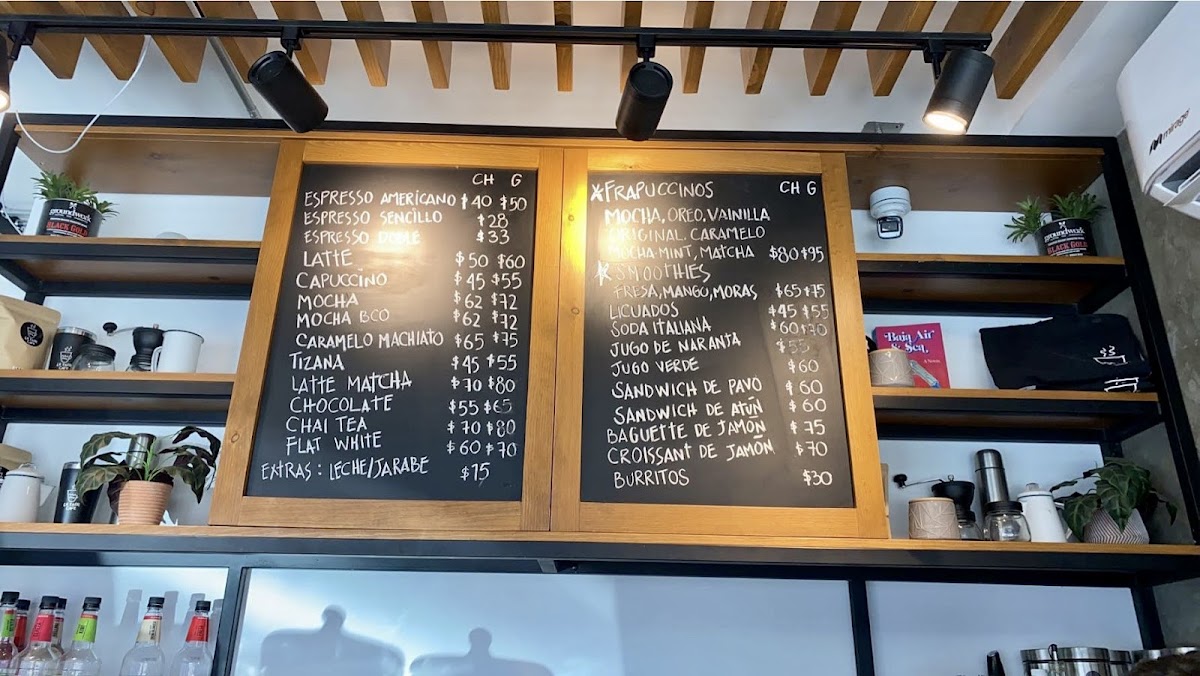 CH G
ESPRESSO AMERICANO $40 $50
ESPRESSO SENCILLO $28
ESPRESSO DOBLE $33
LATTE $50 $60
CAPUCCINO $45 $55
MOCHA $62 $72
MOCHA BCO $62 $72
CARAMELO MACHIATO $65 $75
TIZANA $45 $55
LATTE MATCHA $70 $80
CHOCOLATE $55 $65
CHAI TEA $70 $80
FLAT WHITE $60 $70
EXTRAS: LECHE/JARABE $15
*FRAPUCCINOS CH G
MOCHA, OREO, VAINILLA
ORIGINAL, CARAMELO
MOCHA-MINT, MATCHA $80 $95
*SMOOTHIES
FRESA, MANGO, MORAS $65 $75
LICUADOS $45 $55
SODA ITALIANA $60 $70
JUGO DE NARANJA $55
JUGO VERDE $60
SANDWICH DE PAVO $60
SANDWICH DE ATÚN $60
BAGUETTE DE JAMÓN $75
CROISSANT DE JAMÓN $70
BURRITOS $30
groundwork
BLACK GOLD
groundwork
BLACK GOLD
Baja Air
& Sea
mirage